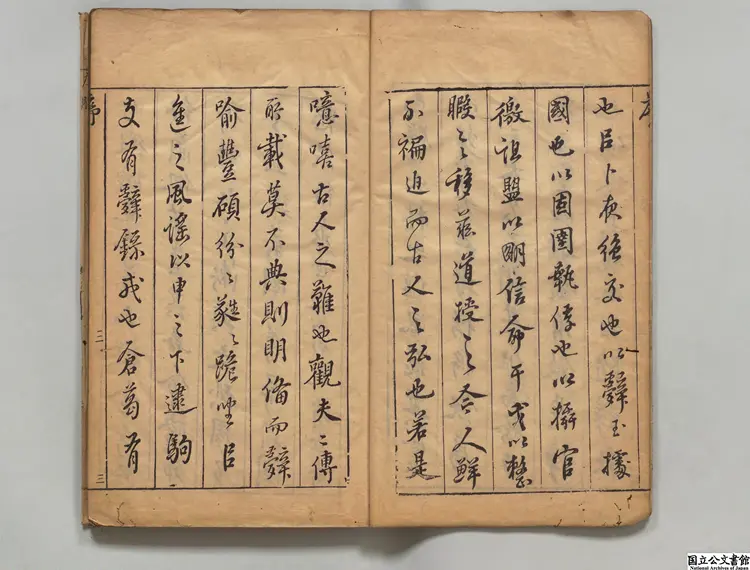 也㠯卜夜絶交也以辭玉據
國也以固圉執俘也以攝官
徼詛盟以明信俞干戈以整
暇之移茲道授之今人鮮
不褊迫而古人之弘也若是
噫嘻古人之難也觀夫〻傳
所載莫不典則明俻而辭
喻豐碩份〻蕤〻跪坐㠯
進之風謡以申之下逮駒
支有辭 戎也倉葛有
序
三
三
国立公文書館
National Archives of Japan